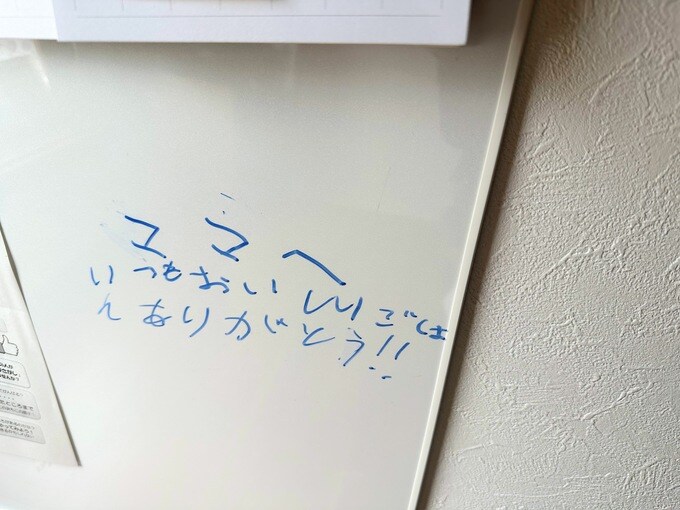 ママへ
いつもおいしいごは
んありがとう!!